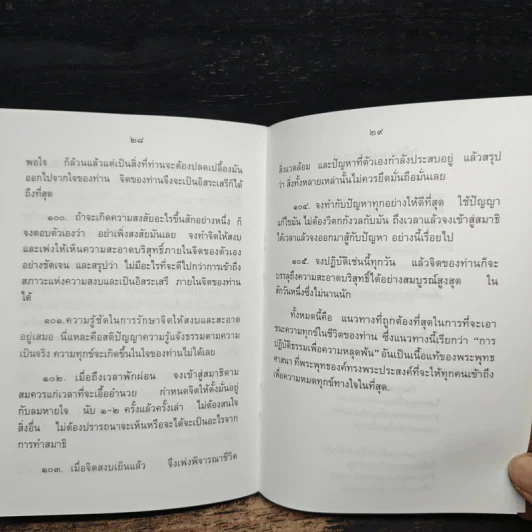 ๒๘
พอใจ ก็ล้วนแล้วแต่เป็นสิ่งที่ท่านจะต้องปลดเปลื้องมัน
ออกไปจากใจของท่าน จิตของท่านจึงจะเป็นอิสระเสรีก็ได้
ถึงที่สุด
๑๐๐. ถ้าจะเกิดความสงสัยอะไรขึ้นสักอย่างหนึ่ง ก็
จงตอบตัวเองว่า อย่าเพิ่งสงสัยมันเลย จงทำจิตให้สงบ
และเพ่งให้เห็นความสะอาดบริสุทธิ์ภายในจิตของตัวเอง
อย่างชัดเจน และสรุปว่า ไม่มีอะไรที่จะดีไปกว่าการเข้าถึง
สภาวะแห่งความสงบและเป็นอิสระเสรี ภายในจิตของท่าน
ได้
๑๐๑. ความรู้ชัดในการรักษาจิตให้สงบและสะอาด
อยู่เสมอ นี่แหละคือสติปัญญาความรู้แจ้งธรรมตามความ
เป็นจริง ความทุกข์จะเกิดขึ้นในใจของท่านไม่ได้เลย
๑๐๒. เมื่อถึงเวลาพักผ่อน จงเข้าสู่สมาธิตาม
สมควรแก่เวลาที่จะเอื้ออำนวย กำหนดจิตให้ตั้งมั่นอยู่
กับลมหายใจ นับ ๑-๒ ครั้งแล้วครั้งเล่า ไม่ต้องสนใจ
สิ่งอื่น ไม่ต้องปรารถนาจะเห็นหรือจะได้จะเป็นอะไรจาก
การทำสมาธิ
๑๐๓. เมื่อจิตสงบเย็นแล้ว จึงเพ่งพิจารณาชีวิต
๒๙
สิ่งแวดล้อม และปัญหาที่ตัวเองกำลังประสบอยู่ แล้วสรุป
ว่า สิ่งทั้งหลายเหล่านั้นไม่ควรยึดมั่นถือมั่นเลย
๑๐๔. จงทำกับปัญหาทุกอย่างให้ดีที่สุด ใช้ปัญญา
แก้ไขมัน ไม่ต้องวิตกกังวลกับมัน ถึงเวลาแล้วจงเข้าสู่สมาธิ
ได้เวลาแล้วจงออกมาสู้กับปัญหา อย่างนี้เรื่อยไป
๑๐๕. จงปฏิบัติเช่นนี้ทุกวัน แล้วจิตของท่านก็จะ
บรรลุถึงความสะอาดบริสุทธิ์ได้อย่างสมบูรณ์สูงสุด ใน
สักวันหนึ่งซึ่งไม่นานนัก
ทั้งหมดนี้คือ แนวทางที่ถูกต้องที่สุดในการที่จะเอา
ชนะความทุกข์ในชีวิตของท่าน ซึ่งแนวทางนี้เรียกว่า "การ
ปฏิบัติธรรมเพื่อความหลุดพ้น" อันเป็นเนื้อแท้ของพระพุทธ
ศาสนา ที่พระพุทธองค์ทรงพระประสงค์ที่จะให้ทุกคนเข้าถึง
เพื่อความหมดทุกข์ทางใจในที่สุด.